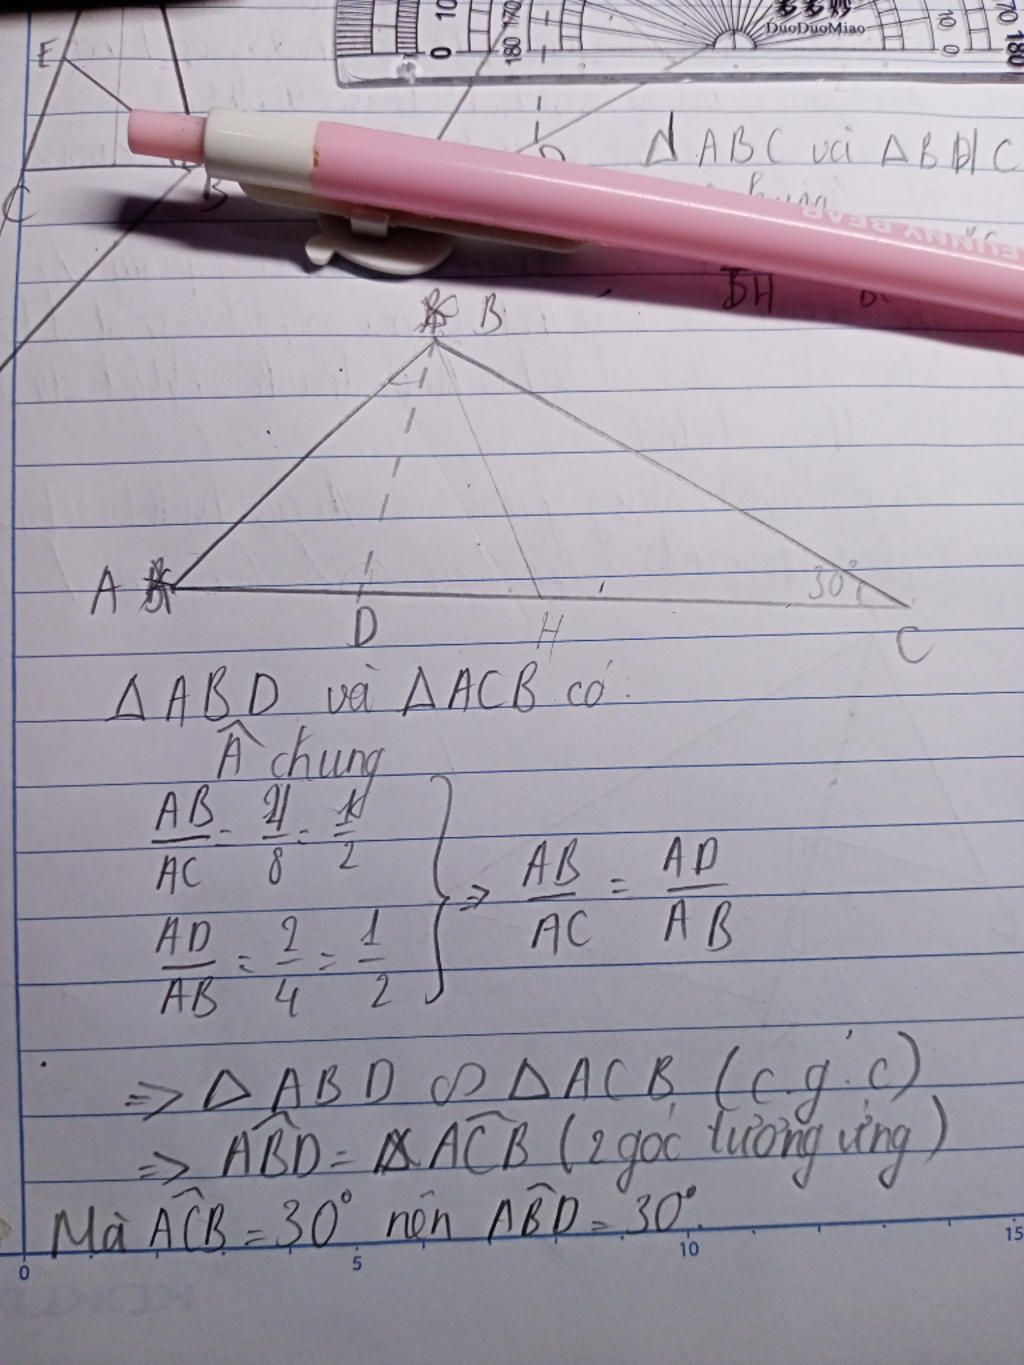 10
0
170
180
DuoDuoMiao
10
0
70
180
E
C
B
Δ ABC và ΔBHC
chung
FUNNY BEAR
BH
B
A
D
H
30°
C
Δ ABD và ΔACB có:
Â chung
AB/AC = 4/8 = 1/2
AD/AB = 2/4 = 1/2
⇒ AB/AC = AD/AB
⇒ Δ ABD ∽ ΔACB (c.g.c)
⇒ ABD̂ = ACB̂ (2 góc tương ứng)
Mà ACB̂ = 30° nên ABD̂ = 30°.
0 5 10 15